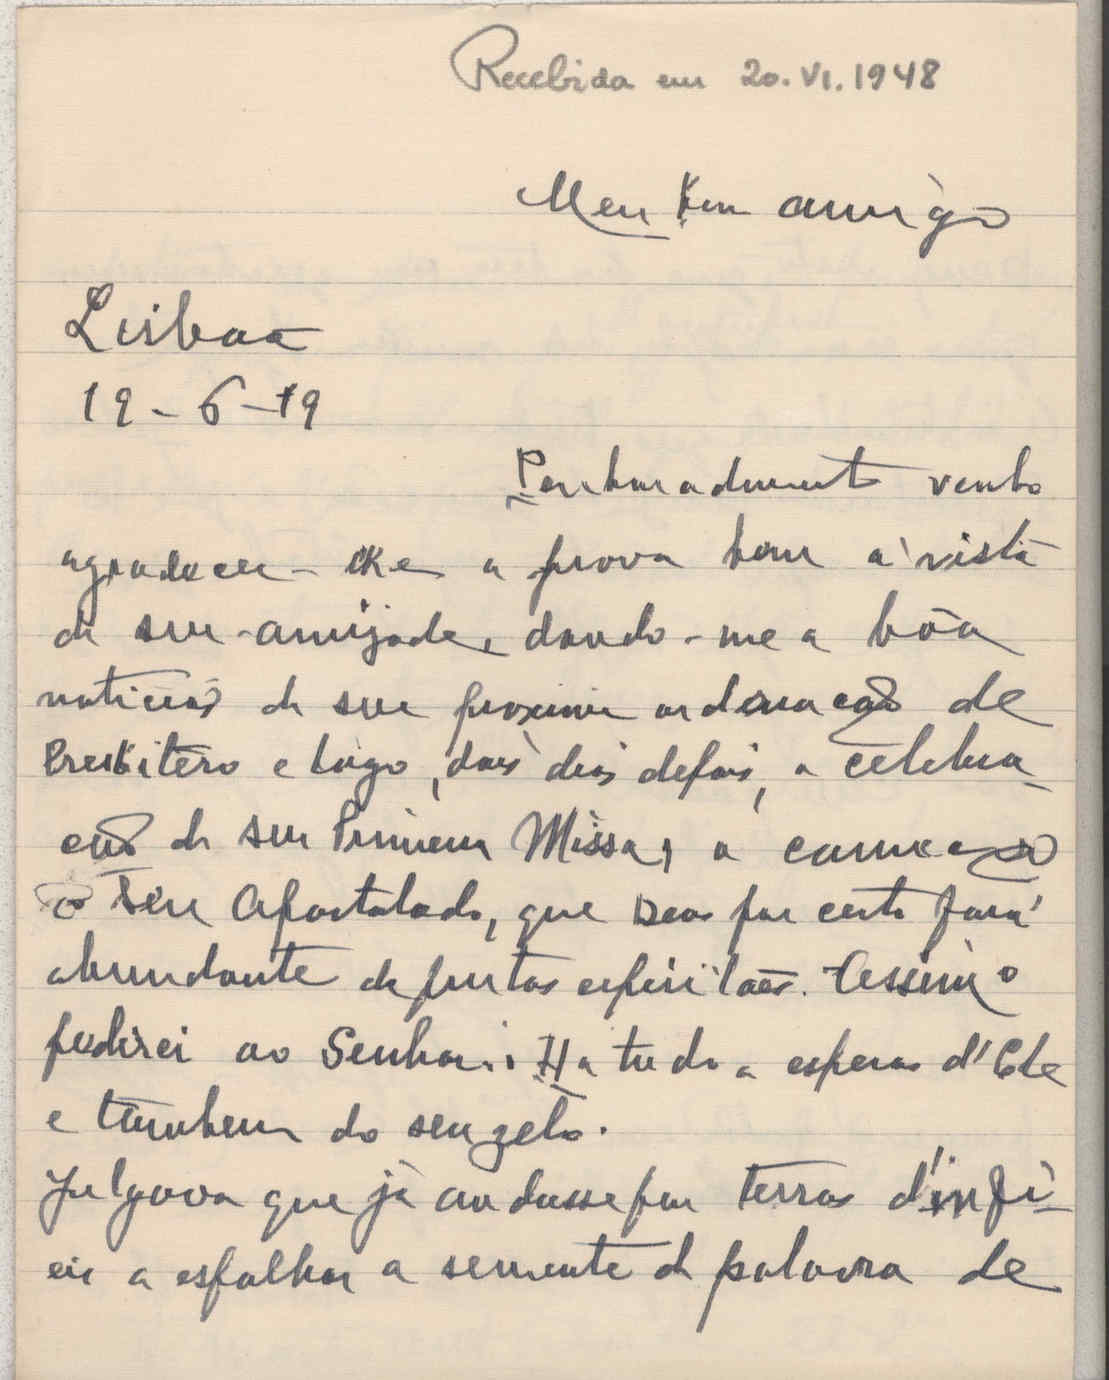 Recebida em 20.VI.1948
Meu bom amigo
Lisboa
19-6-19
Penhoradamente venho
agradecer-lhe a prova bem á vista
de sua amizade, dando-me a bôa
noticia de sua proxima ordenação de
Presbitero e lògo, dois dias depois, a celebra-
ção de sua Primeira Missa, a começar
o seu Apostolado, que Deus por certo fará
abundante de frutos espirituaes. Assim o
pedirei ao Senhor. Ha tudo a esperar d'Ele
e tambem do seu zelo.
Julgava que já andasse por terras d'infi-
eis a espalhar a semente da palavra de